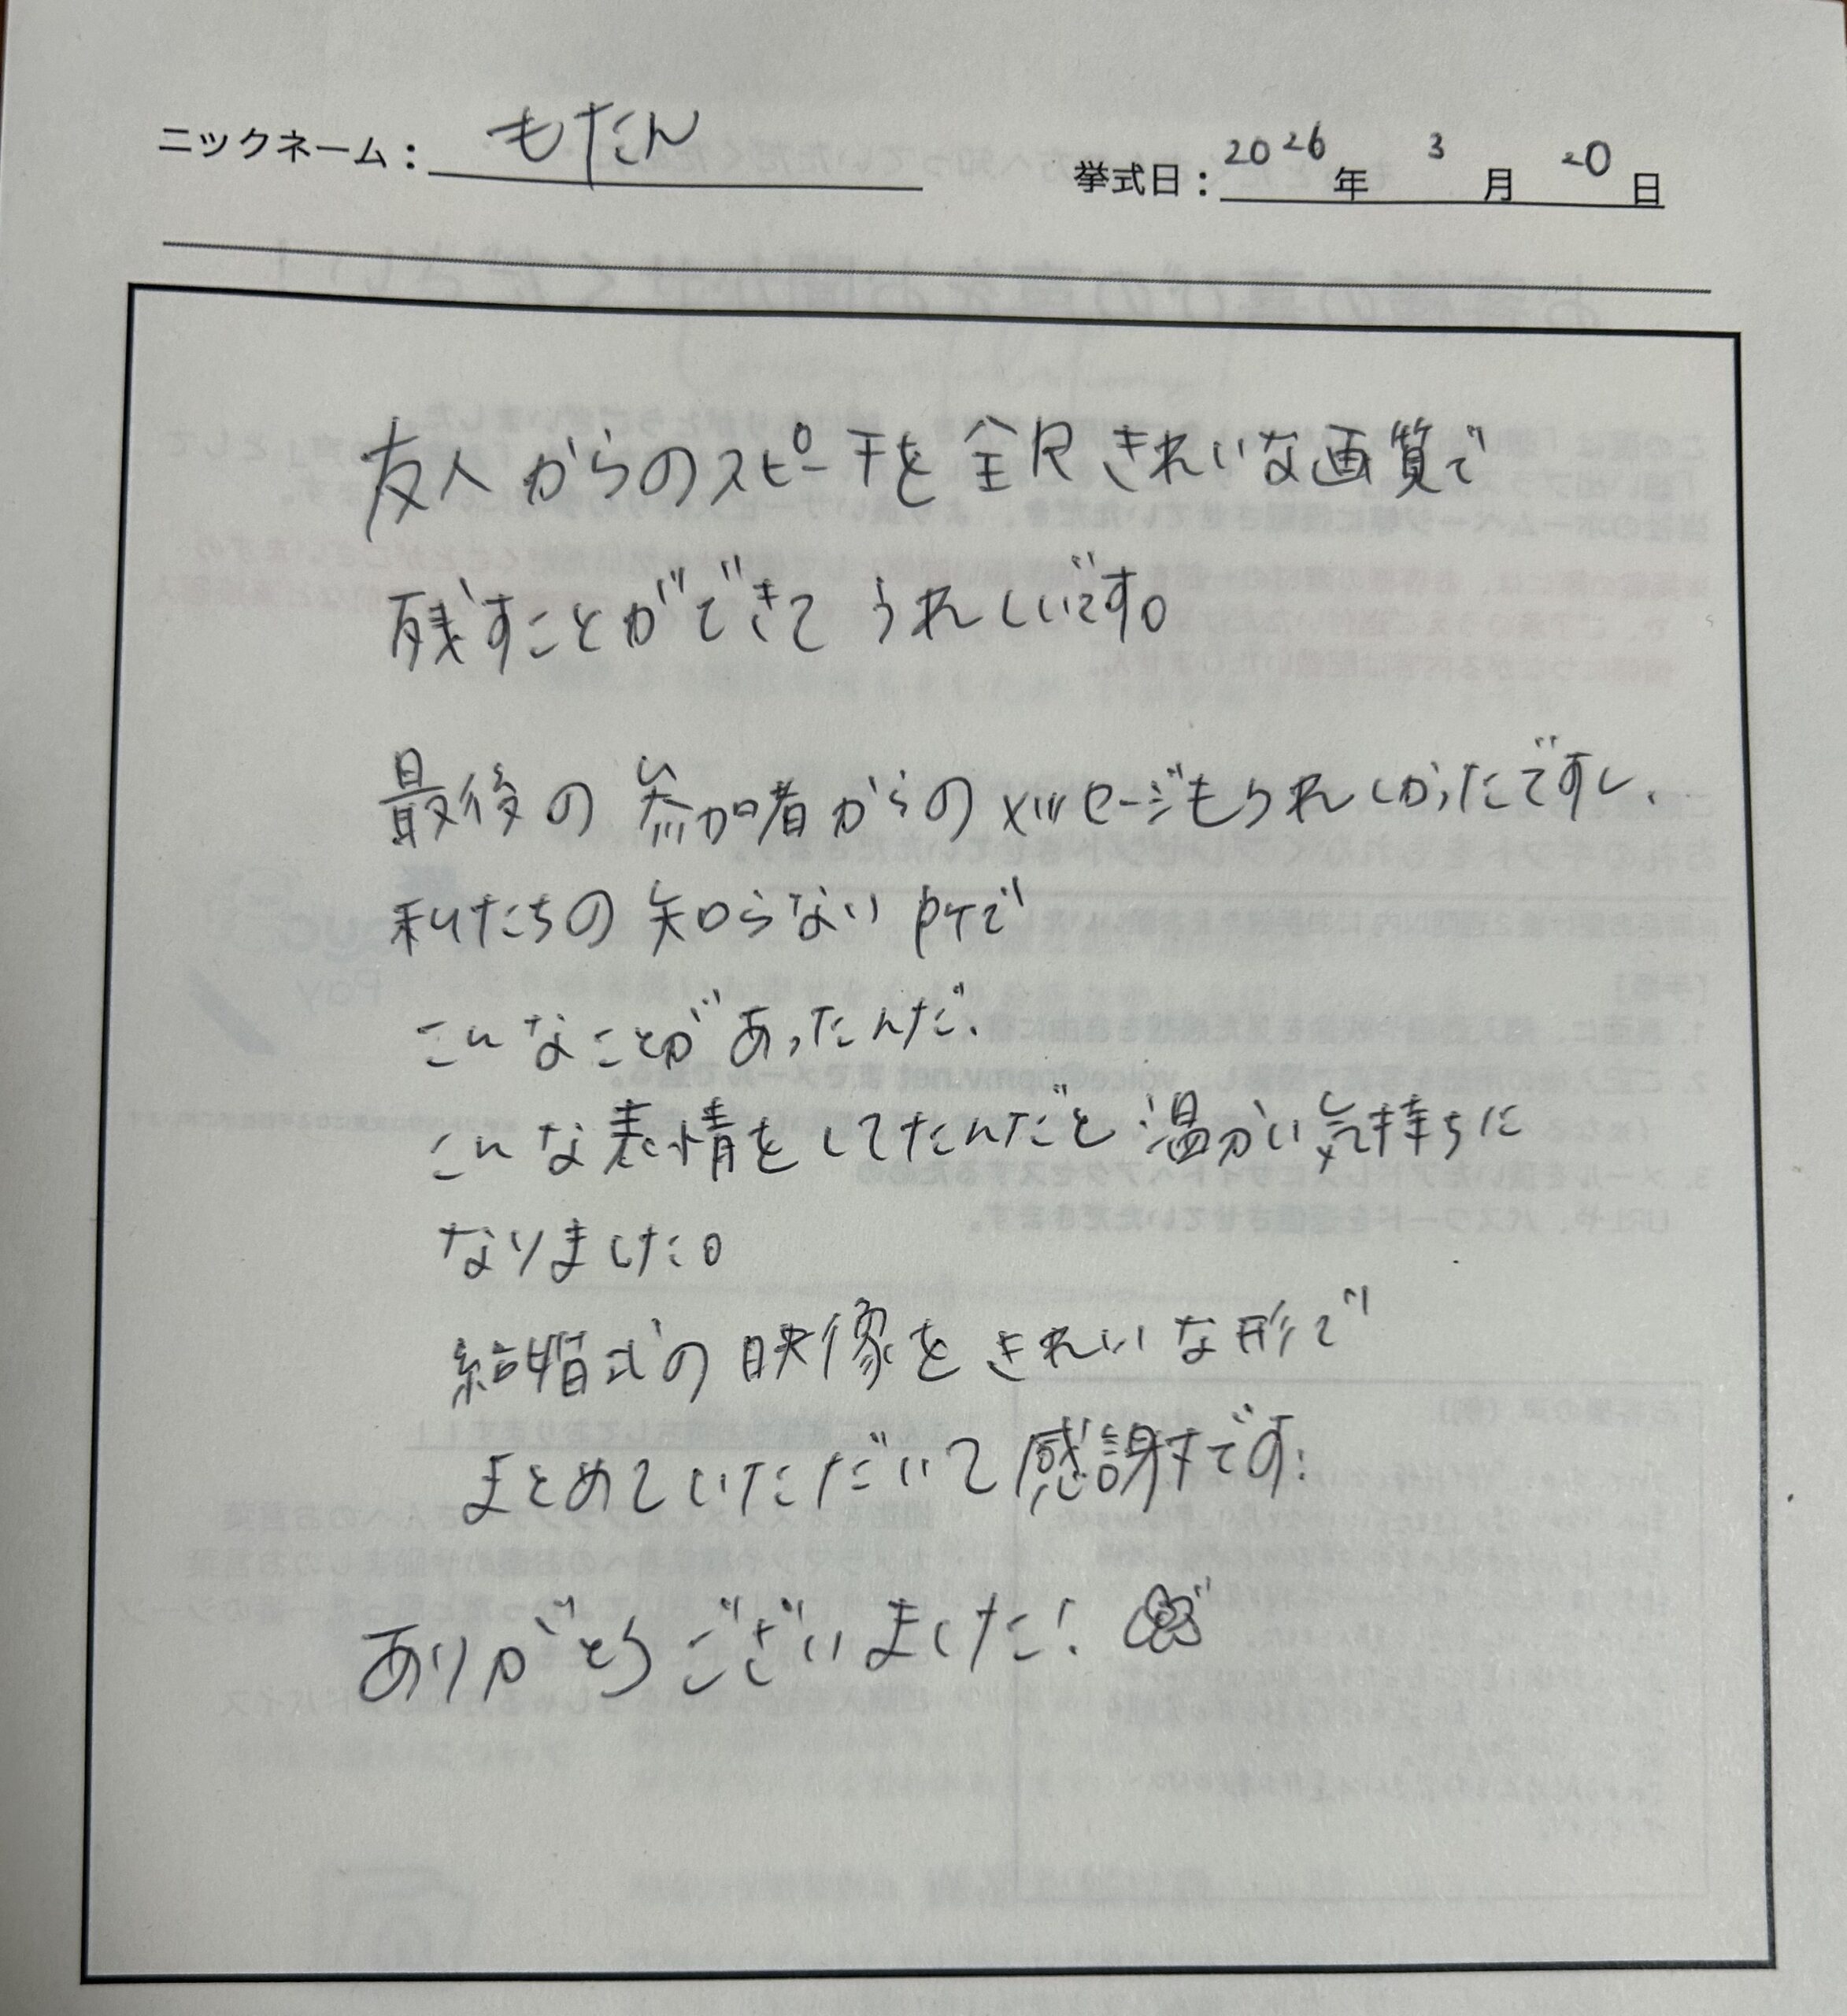 ニックネーム：もたん
挙式日：2026年 3月 20日
友人からのスピーチを全尺きれいな画質で
残すことができてうれしいです。
最後の参加者からのメッセージもうれしかったですし、
私たちの知らない所で
こんなことがあったんだ、
こんな表情をしてたんだと温かい気持ちに
なりました。
結婚式の映像をきれいな形で
まとめていただいて感謝です!
ありがとうございました!